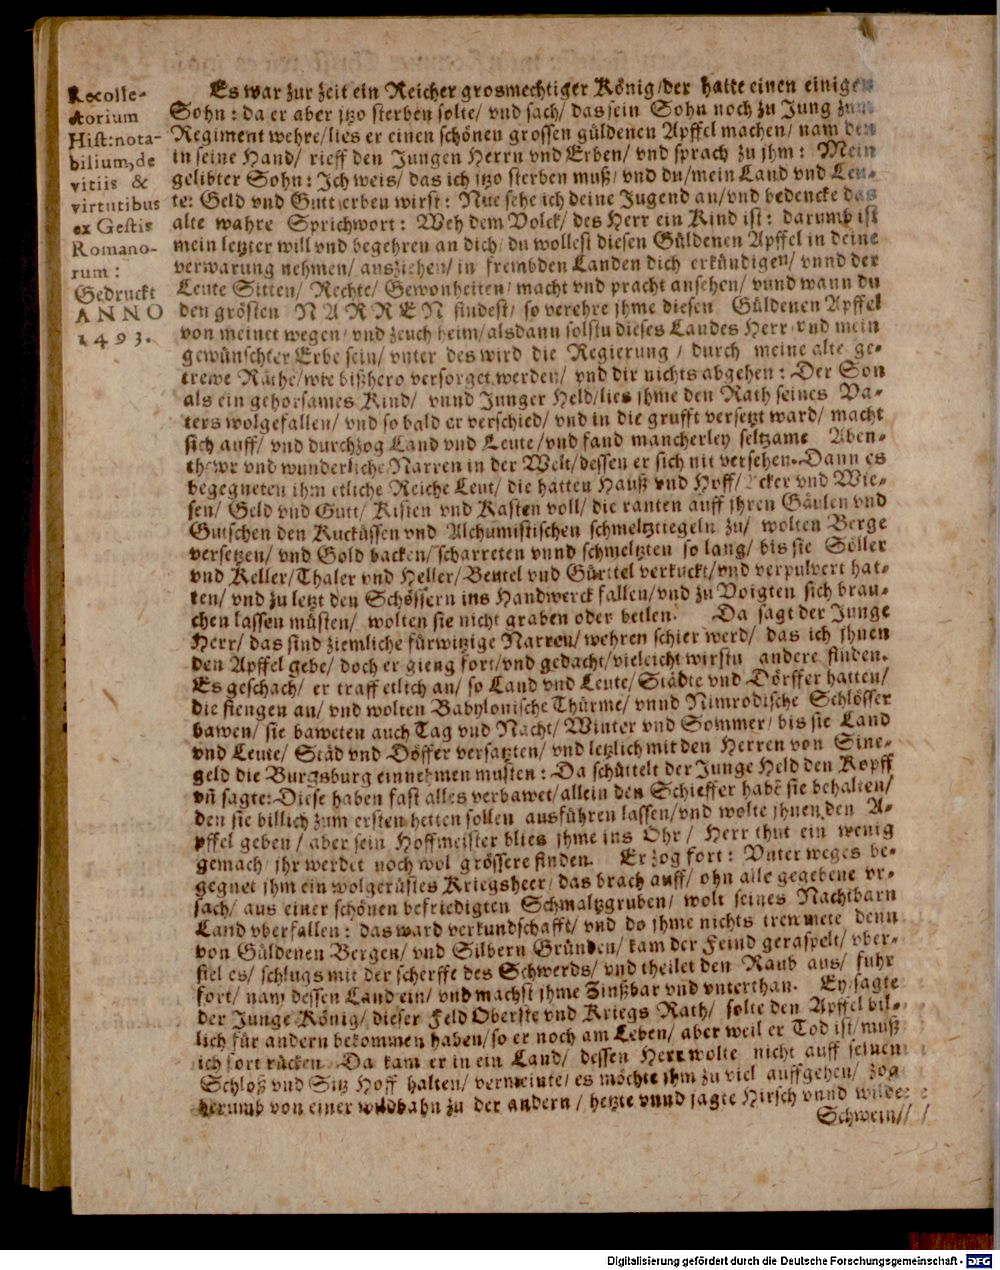 Recolle-
ctorium
Hist: nota-
bilium, de
vitiis &
virtutibus
ex Gestis
Romano-
rum:
Gedruckt
ANNO
1493.
Es war zur zeit ein Reicher grosmechtiger König/der hatte einen einigen
Sohn: da er aber jtzo sterben solte/ vnd sach/ das sein Sohn noch zu Jung zum
Regiment wehre/lies er einen schönen grossen güldenen Apffel machen/ nam den
in seine Hand/ rieff den Jungen Herrn vnd Erben/ vnd sprach zu jhm: Mein
gelibter Sohn: Ich weis/ das ich jtzo sterben muß/ vnd du/mein Land vnd Leu-
te: Geld vnd Gutt erben wirst: Nue sehe ich deine Jugend an/vnd bedencke das
alte wahre Sprichwort: Weh dem Volck/ des Herr ein Kind ist: darumb ist
mein letzter will vnd begehren an dich/ du wollest diesen Güldenen Apffel in deine
verwarung nehmen/ ausziehen/ in frembden Landen dich erkündigen/ vnnd der
Leute Sitten/ Rechte/ Gewonheiten/ macht vnd pracht ansehen/ vnnd wann du
den grösten NARREN findest/ so verehre jhme diesen Güldenen Apffel
von meinet wegen/ vnd zeuch heim/alsdann solstu dieses Landes Herr/vnd mein
gewünschter Erbe sein/ vnter des wird die Regierung/ durch meine alte ge-
trewe Räthe/wie bißhero versorget werden/ vnd dir nichts abgehen: Der Son
als ein gehorsames Kind/ vnnd Junger Held/lies jhme den Rath seines Va-
ters wolgefallen/ vnd so bald er verschied/ vnd in die grufft versetzt ward/ macht
sich auff/ vnd durchzog Land vnd Leute/vnd fand mancherley seltzame Aben-
thewr vnd wunderliche Narren in der Welt/dessen er sich nit versehen. Dann es
begegneten ihm etliche Reiche Leut/ die hatten Hauß vnd Hoff/ Acker vnd Wie-
sen/ Geld vnd Gutt/ Kisten vnd Kasten voll/ die ranten auff jhren Gäulen vnd
Gutschen den Kucküssen vnd Alchumistischen schmeltztiegeln zu/ wolten Berge
versetzen/ vnd Gold backen/ scharreten vnnd schmeltzten so lang/ bis sie Söller
vnd Keller/Thaler vnd Heller/Beutel vnd Gürttel verkuckt/vnd verpulvert hat-
ten/ vnd zu letzt den Schössern ins Handwerck fallen/vnd zu Voigten sich brau-
chen lassen müsten/ wolten sie nicht graben oder betlen. Da sagt der Junge
Herr/ das sind ziemliche fürwitzige Narren/ wehren schier werd/ das ich jhnen
den Apffel gebe/ doch er gieng fort/vnd gedacht/vieleicht wirstu andere finden.
Es geschach/ er traff etlich an/ so Land vnd Leute/Städte vnd Dörffer hatten/
die fiengen an/ vnd wolten Babylonische Thürme/ vnnd Nimrodische Schlösser
bawen/ sie baweten auch Tag vnd Nacht/ Winter vnd Sommer/ bis sie Land
vnd Leute/ Städ vnd Döffer versatzten/ vnd letzlich mit den Herren von Sine-
geld die Burgsburg einnehmen musten: Da schüttelt der Junge Held den Kopff
vñ sagte: Diese haben fast alles verbawet/allein den Schieffer habẽ sie behalten/
den sie billich zum ersten hetten sollen ausführen lassen/vnd wolte jhnen den A-
pffel geben/ aber sein Hoffmeister blies jhme ins Ohr/ Herr thut ein wenig
gemach/ jhr werdet noch wol grössere finden. Er zog fort: Vnter weges be-
gegnet jhm ein wolgerüstes Kriegsheer/ das brach auff/ ohn alle gegebene vr-
sach/ aus einer schönen befriedigten Schmaltzgruben/ wolt seines Nachtbarn
Land vberfallen: das ward verkundschafft/ vnd do jhme nichts trewmete denn
von Güldenen Bergen/ vnd Silbern Gründen/ kam der Feind geraspelt/ vber-
fiel es/ schlugs mit der scherffe des Schwerds/ vnd theilet den Raub aus/ fuhr
fort/ nam dessen Land ein/ vnd machst jhme Zinßbar vnd vnterthan. Ey sagte
der Junge König/ dieser Feld Oberste vnd Kriegs Rath/ solte den Apffel bil-
lich für andern bekommen haben/so er noch am Leben/ aber weil er Tod ist/ muß
ich fort rücken. Da kam er in ein Land/ dessen Herr wolte nicht auff seinem
Schloß vnd Sitz Hoff halten/ vermeinte/ es möchte jhm zu viel auffgehen/ zog
herumb von einer wildbahn zu der andern/ hetzte vnnd jagte Hirsch vnnd wilde
Schwein//
Digitalisierung gefördert durch die Deutsche Forschungsgemeinschaft - DFG